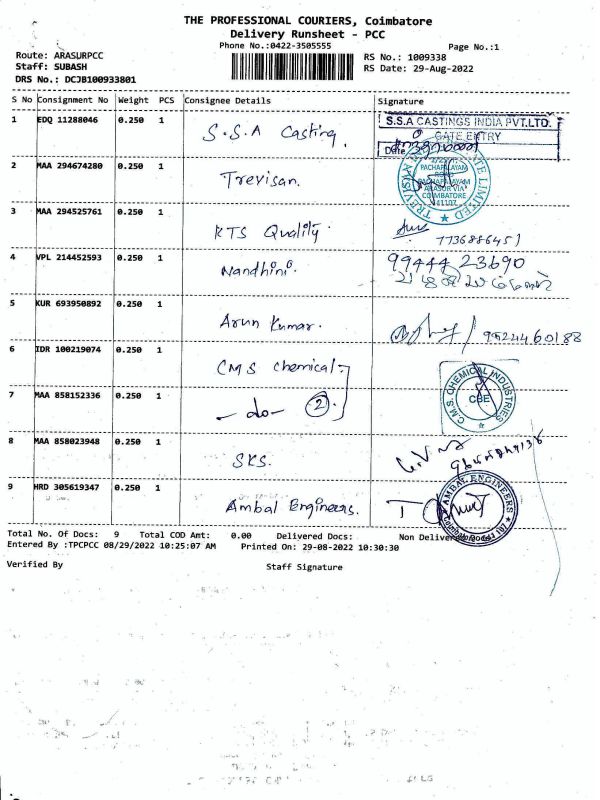 THE PROFESSIONAL COURIERS, Coimbatore
Delivery Runsheet - PCC
Phone No.:0422-3505555
Page No.:1
Route: ARASURPCC
Staff: SUBASH
DRS No.: DCJB100933801
RS No.: 1009338
RS Date: 29-Aug-2022
S No Consignment No Weight PCS Consignee Details Signature
1 EDQ 11288046 0.250 1 S.S.A Casting.
S.S.A CASTINGS INDIA PVT.LTD.
GATE ENTRY
Date
2 MAA 294674280 0.250 1 Trevisan.
PACHAPALAYAM
ARASUR VIA
COIMBATORE
641107
3 MAA 294525761 0.250 1 RTS Quality. 7736886451
4 VPL 214452593 0.250 1 Nandhini. 99444 23690
5 KUR 693950892 0.250 1 Arun Kumar. 9524460188
6 IDR 100219074 0.250 1 CMS chemical
7 MAA 858152336 0.250 1 - do - 2
C.M.S. CHEMICAL INDUSTRIES
CBE
8 MAA 858023948 0.250 1 SKS.
9 HRD 305619347 0.250 1 Ambal Engineers.
AMBAL ENGINEERS
Total No. Of Docs: 9 Total COD Amt: 0.00 Delivered Docs: Non Delivered Docs:
Entered By :TPCPCC 08/29/2022 10:25:07 AM Printed On: 29-08-2022 10:30:30
Verified By Staff Signature